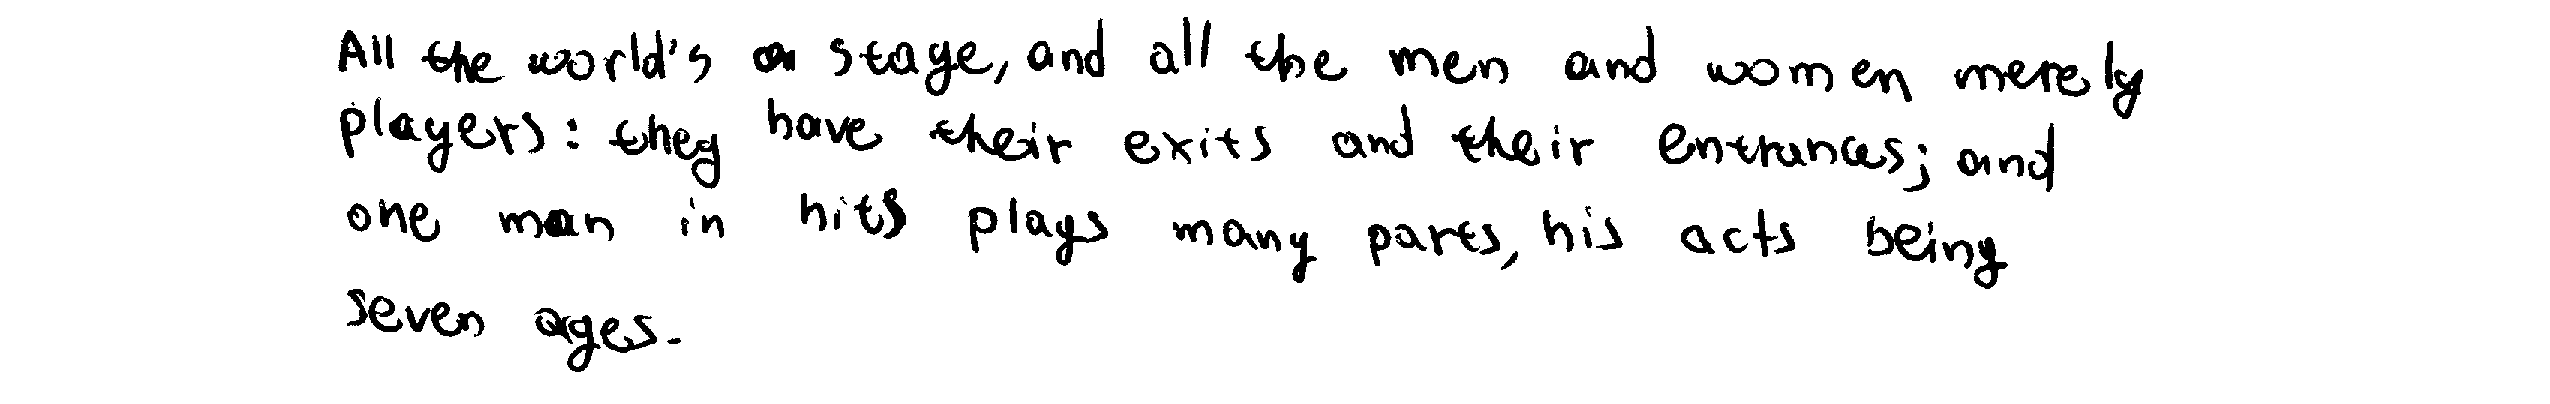 All the world's a stage, and all the men and women merely
players: they have their exits and their entrances; and
one man in hits plays many parts, his acts being
seven ages.